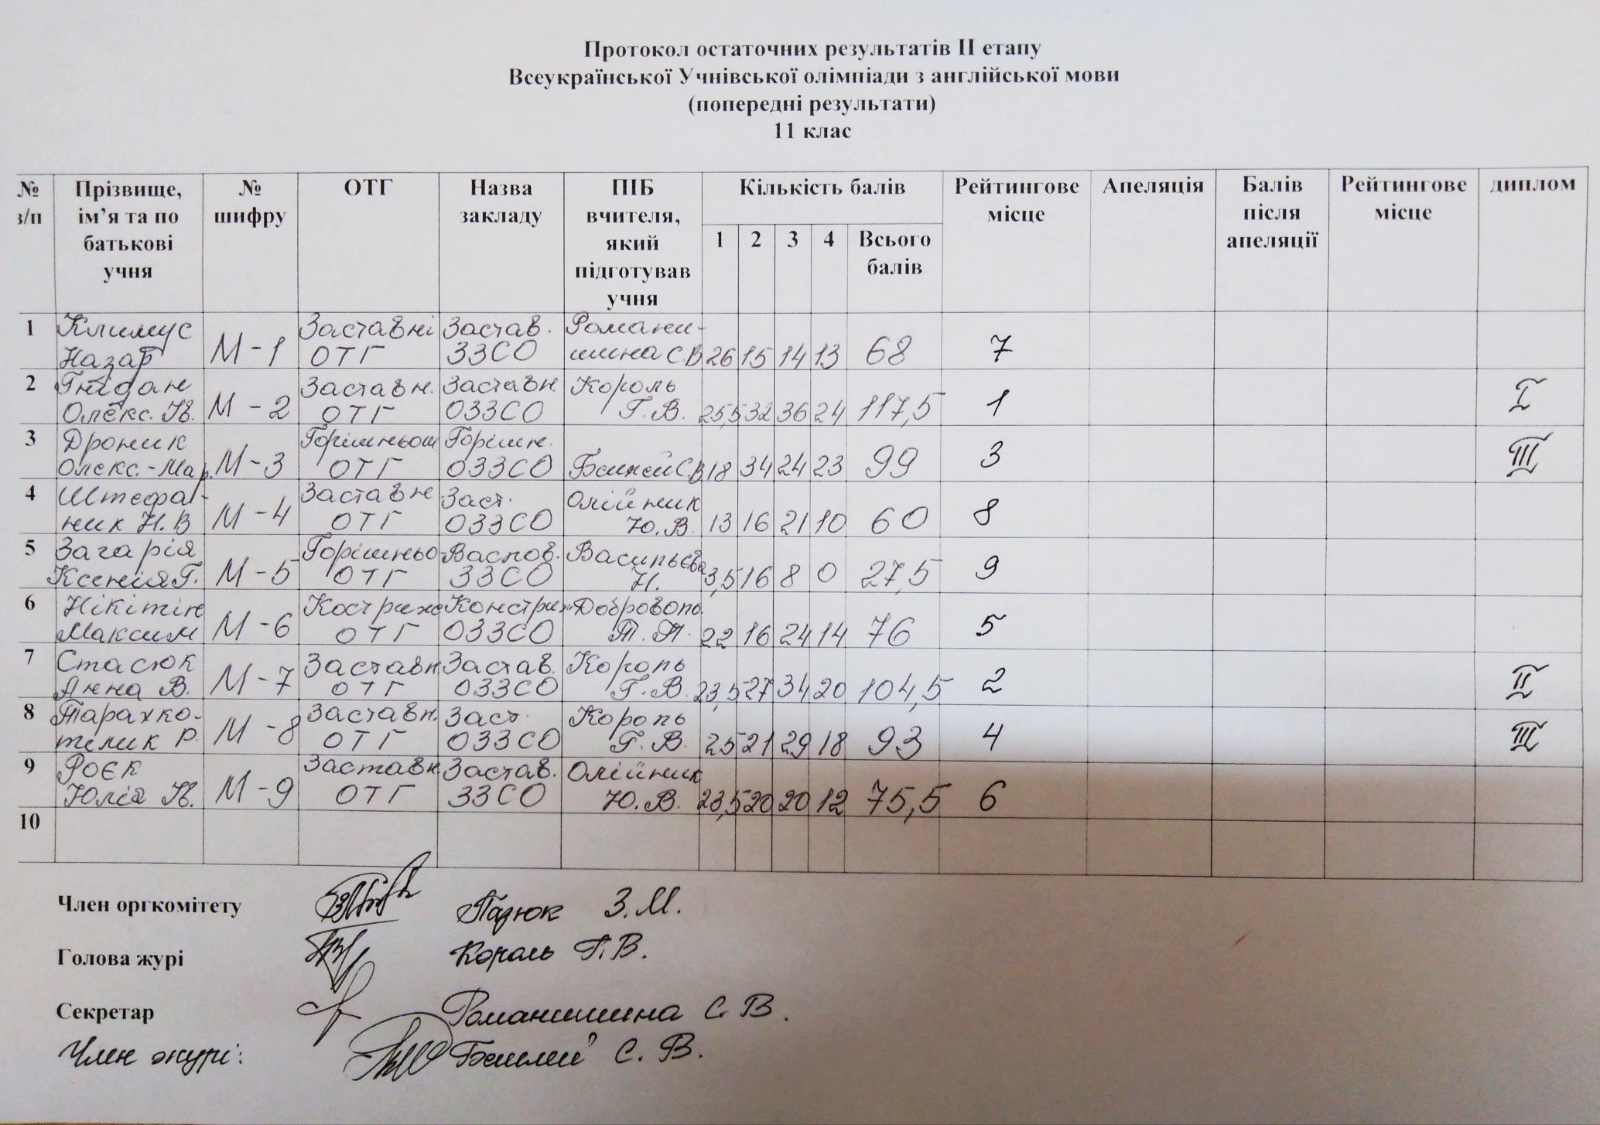 Протокол остаточних результатів II етапу
Всеукраїнської Учнівської олімпіади з англійської мови
(попередні результати)
11 клас
№ з/п Прізвище, ім’я та по батькові учня № шифру ОТГ Назва закладу ПІБ вчителя, який підготував учня Кількість балів Рейтингове місце Апеляція Балів після апеляції Рейтингове місце диплом
1 2 3 4 Всього балів
1 Климус Назар М-1 Заставні ОТГ Застав. ЗЗСО Романи-шина С.В 26 15 14 13 68 7
2 Олекс. М-2 Заставн. ОТГ Заставн. ОЗЗСО Король Г.В. 25,5 32 36 24 117,5 1 I
3 Дроник Олекс.-Мар. М-3 Горішньош ОТГ Горішн. ОЗЗСО С.В 18 34 24 23 99 3 III
4 Штефа-ник Н.В М-4 Заставн ОТГ Заст. ОЗЗСО Олійник Ю.В. 13 16 21 10 60 8
5 Загарія Ксенія Г. М-5 Горішньо ОТГ ЗЗСО Васильєва Н. 3,5 16 8 0 27,5 9
6 Нікітін Максим М-6 Костриж ОТГ Констриж ОЗЗСО Доброволь. 22 16 24 14 76 5
7 Стасюк Анна В. М-7 Заставн ОТГ Застав. ОЗЗСО Король Г.В. 23,5 27 34 20 104,5 2 II
8 Тарахко-телик Р. М-8 Заставн. ОТГ Заст. ОЗЗСО Король Г.В. 25 21 29 18 93 4 III
9 Роєк Юлія М-9 Заставн ОТГ Застав. ЗЗСО Олійник Ю.В. 23,5 20 20 12 75,5 6
10
Член оргкомітету З.М.
Голова журі Король Г.В.
Секретар Романишина С.В.
Член журі: С.В.